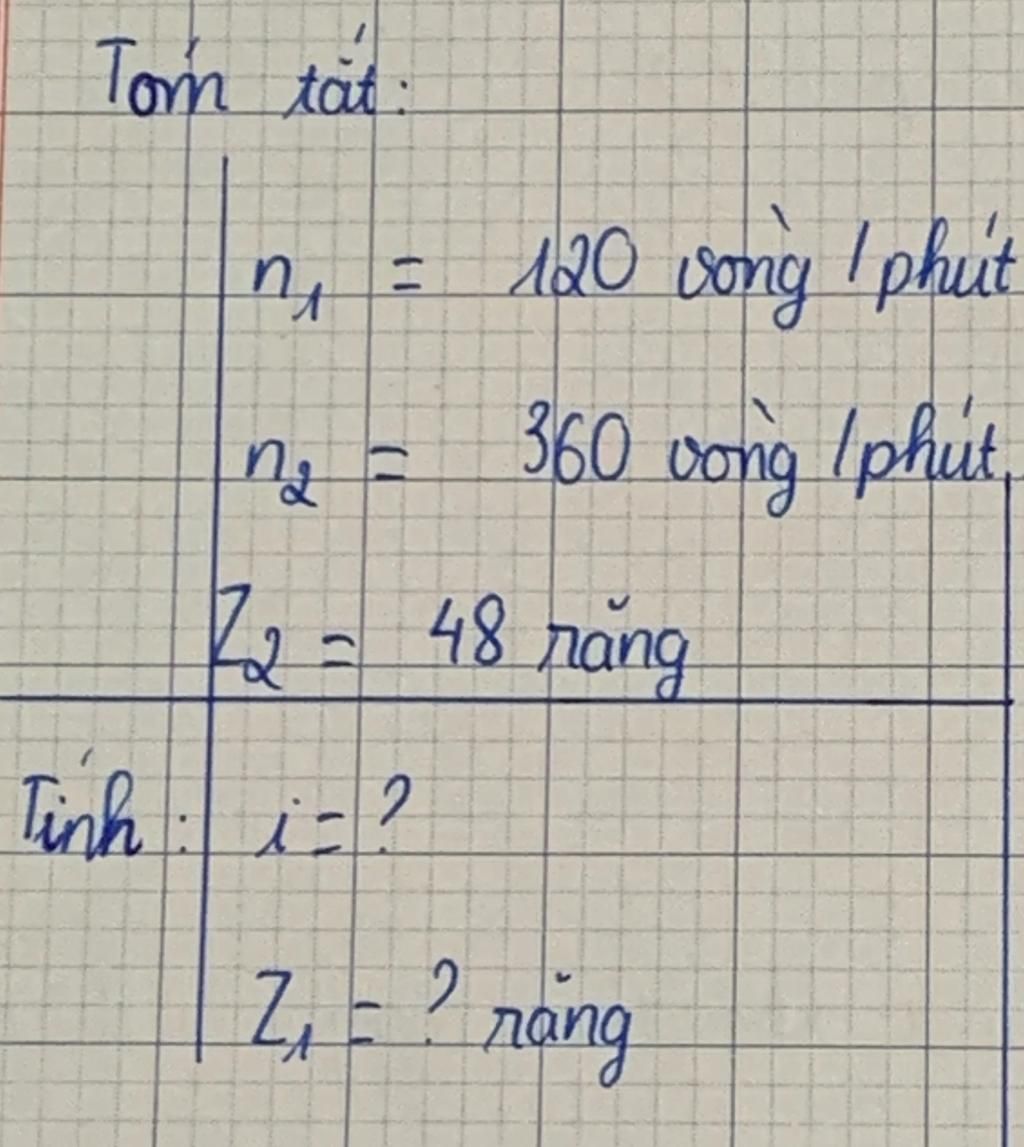 Tóm tắt:
n₁ = 120 vòng / phút
n₂ = 360 vòng / phút
Z₂ = 48 răng
Tính : i = ?
Z₁ = ? răng